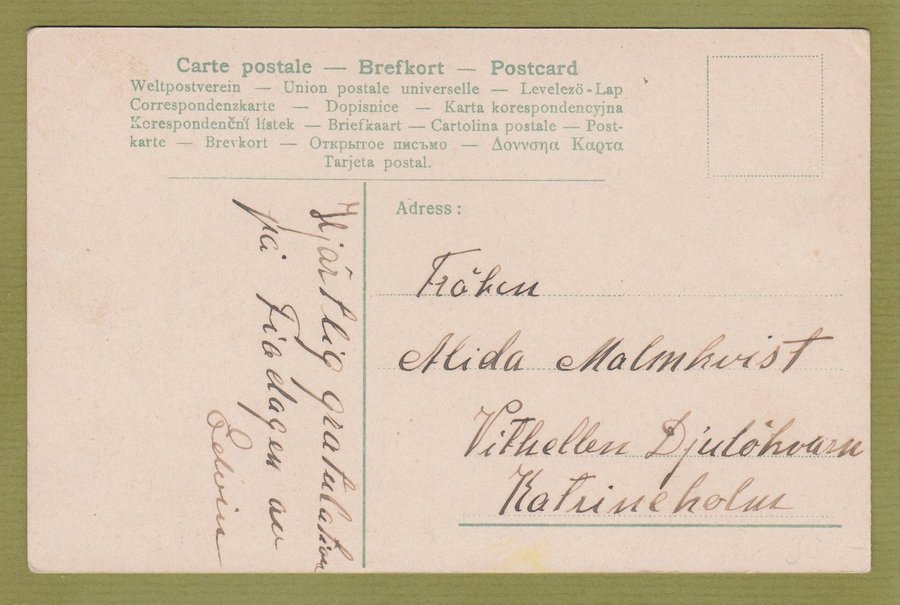 Carte postale — Brefkort — Postcard
Weltpostverein — Union postale universelle — Levelezö-Lap
Correspondenzkarte — Dopisnice — Karta korespondencyjna
Korespondenční lístek — Briefkaart — Cartolina postale — Post-
karte — Brevkort — Открытое письмо — Δοννσηα Καρτα
Tarjeta postal.
Adress:
Fröken
Alida Malmkvist
Vithellen Djulökvarn
Katrineholm
Hjärtlig gratulation
på Födagen av
Edvin